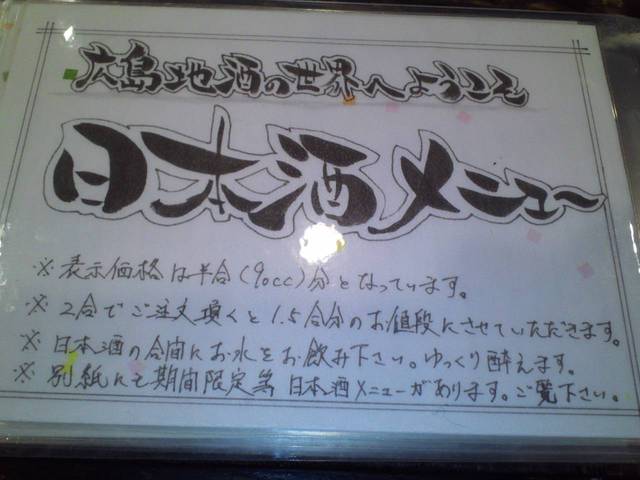 広島地酒の世界へようこそ
日本酒メニュー
※表示価格は半合(90cc)分となっています。
※2合でご注文頂くと1.5合分のお値段にさせていただきます。
※日本酒の合間にお水をお飲み下さい。ゆっくり酔えます。
※別紙にも期間限定等 日本酒メニューがあります。ご覧下さい。